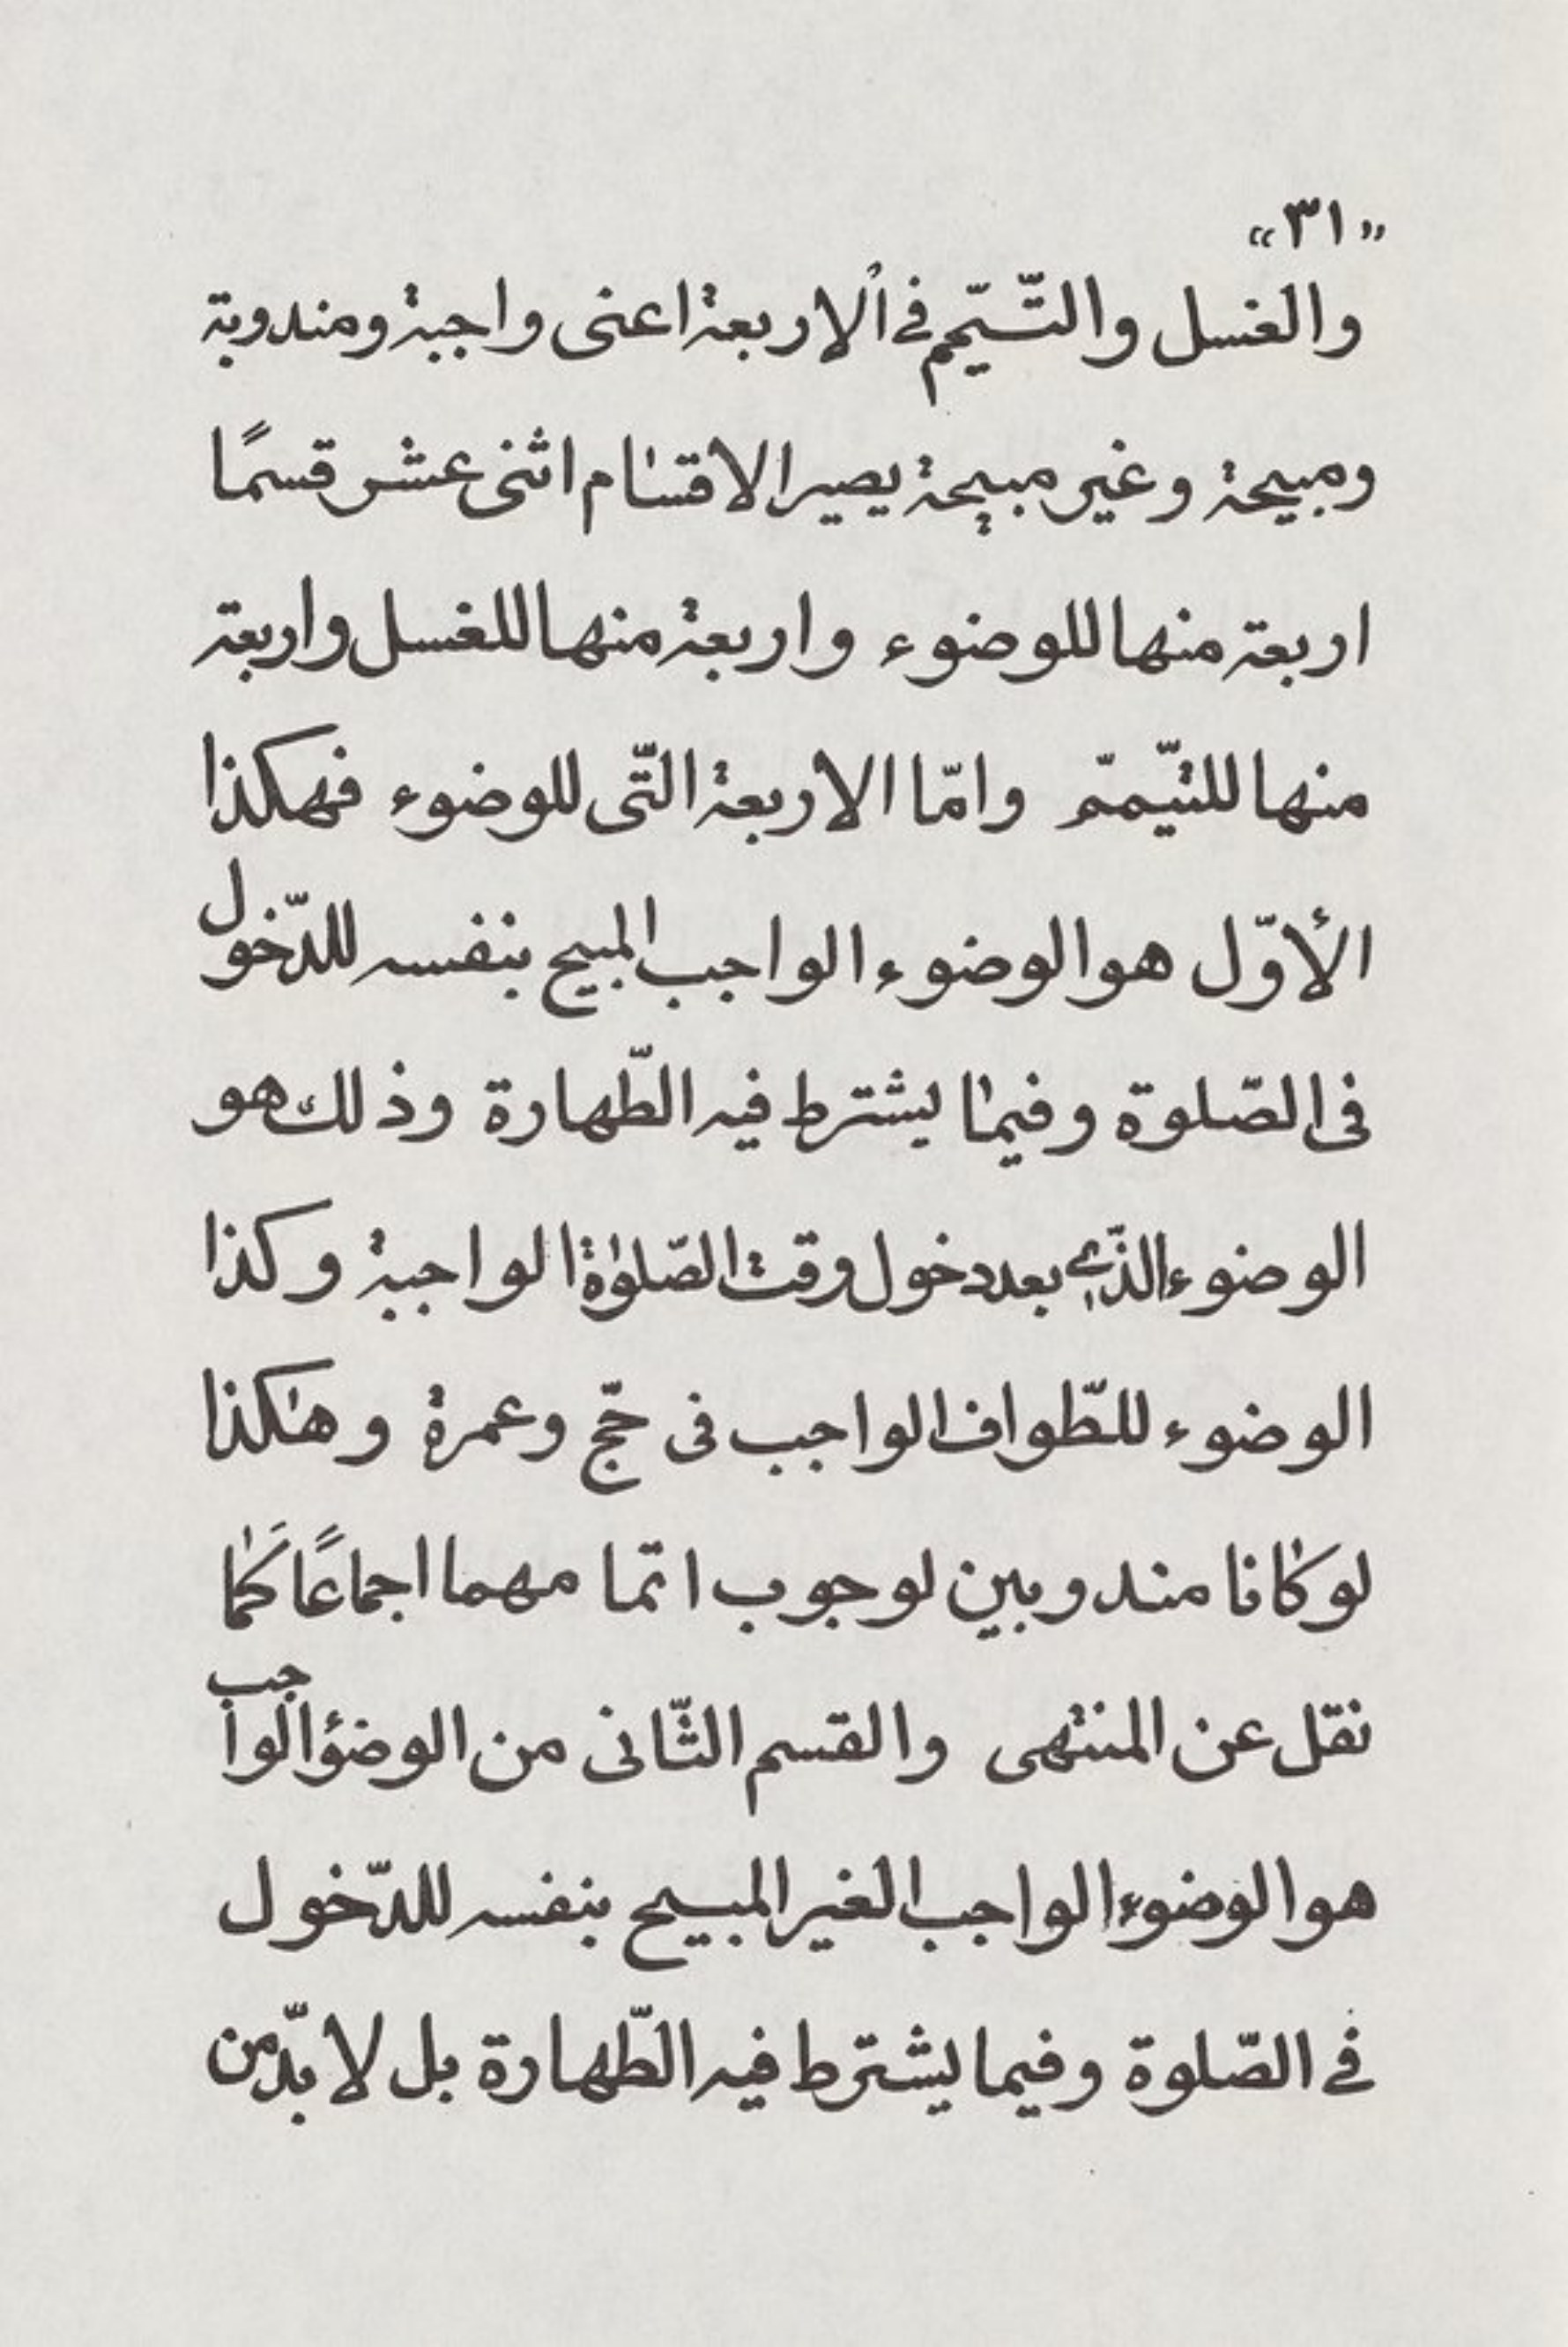 «٣١»
والغسل والتّيمّم فے الاربعة اعنى واجبة ومندوبة
ومبيحة وغير مبيحة يصير الاقسام اثنى عشر قسمًا
اربعة منها للوضوء واربعة منها للغسل واربعة
منها للتيّممّ وامّا الاربعة التّى للوضوء فهكذا
الأوّل هو الوضوء الواجب المبيح بنفسه للدّخول
فى الصّلوة وفيما يشترط فيه الطّهارة وذلك هو
الوضوء الذّے بعد دخول وقت الصّلوٰة الواجبة وكذا
الوضوء للطّواف الواجب فى حّج وعمرة وهٰكذا
لو كانا مندوبين لوجوب اتمامهما اجماعًا كَما
نقل عن المنتهى والقسم الثّانى من الوضؤ الواجب
هو الوضوء الواجب الغير المبيح بنفسه للدّخول
فے الصّلوة وفيما يشترط فيه الطّهارة بل لا بدّ من